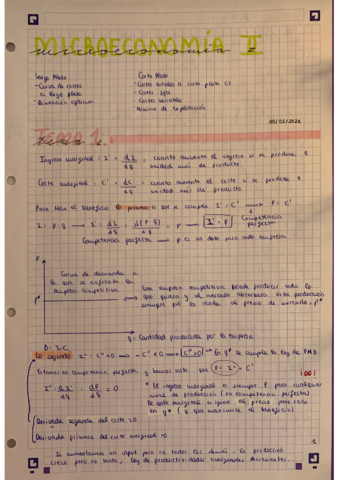 MICROECONOMÍA II
Largo Plazo
Corto Plazo
- Curva de costes
a largo plazo
- Dimensión óptima
- Costes totales a corto plazo CT
- Costes fijos
- Costes variables
Mínimo de explotación
TEMA 1.
Ingreso marginal : I' = dI/dq : cuanto aumenta el ingreso si se produce 1
unidad más de producto
Coste marginal : C' = dC/dq = cuanto aumenta el coste si se produce 1
unidad más de producto.
Para Max el beneficio lo primero es que se cumpla I' = C' → P = C'
Competencia
perfecta
I = P · q → I' = dI/dq = d(P·q)/dq = P → I' = P
Competencia perfecta → P es un dato para cada empresa
P
Curva de demanda a
la que se enfrenta la
empresa competitiva.
P*
Una empresa competitiva puede producir todo lo
que quiera y el mercado absorberá esta producción
siempre que la venda al precio de mercado, P*
q = Cantidad producida por la empresa.
B = I - C
Lo segundo: I'' - C'' < 0 → - C'' < 0 → C'' > 0 → En q* se cumple la ley de PMD
Estamos en competencia perfecta y hemos visto que P = I' = C'
¡OO!
I'' = dI'/dq = dP/dq = 0
* El ingreso marginal es siempre P para cualquier
nivel de producción (en competencia perfecta)
El coste marginal es igual al precio pero solo
en q* (q que maximiza el beneficio)
Derivada segunda del coste > 0
Derivada primera del coste marginal > 0
Si aumentamos un input pero no todos los demás, la producción
crece pero no tanto, ley de productividades marginales decrecientes.
1